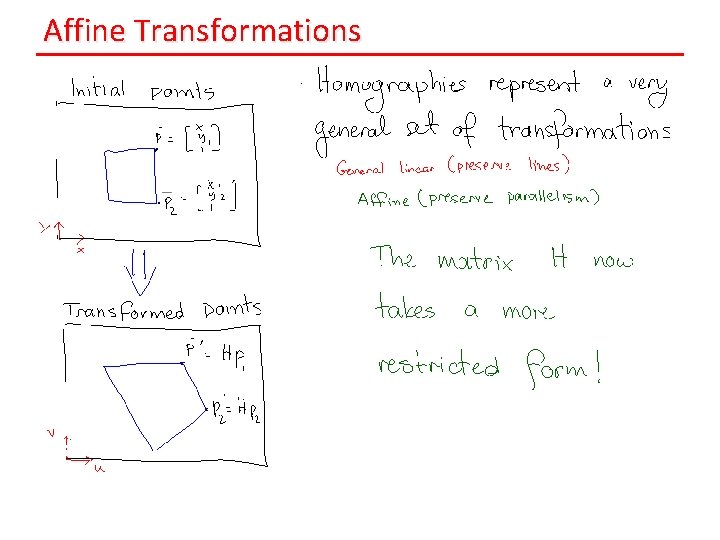 Affine Transformations
Initial points
p̄ = [x₁ y₁ 1]
p̄₂ = [x₂ y₂ 1]
y
x
Transformed points
p̄' = Hp₁
p̄₂' = Hp₂
v
u
Homographies represent a very
general set of transformations
General linear (preserve lines)
Affine (preserve parallelism)
The matrix H now
takes a more
restricted form!